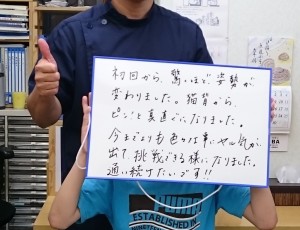 初回から、驚くほど姿勢が
変わりました。猫背から、
ピンと真直ぐになりました。
今までよりも色々な事にやる気が
出て、挑戦できる様になりました。
通い続けたいです!!
ESTABLISHED